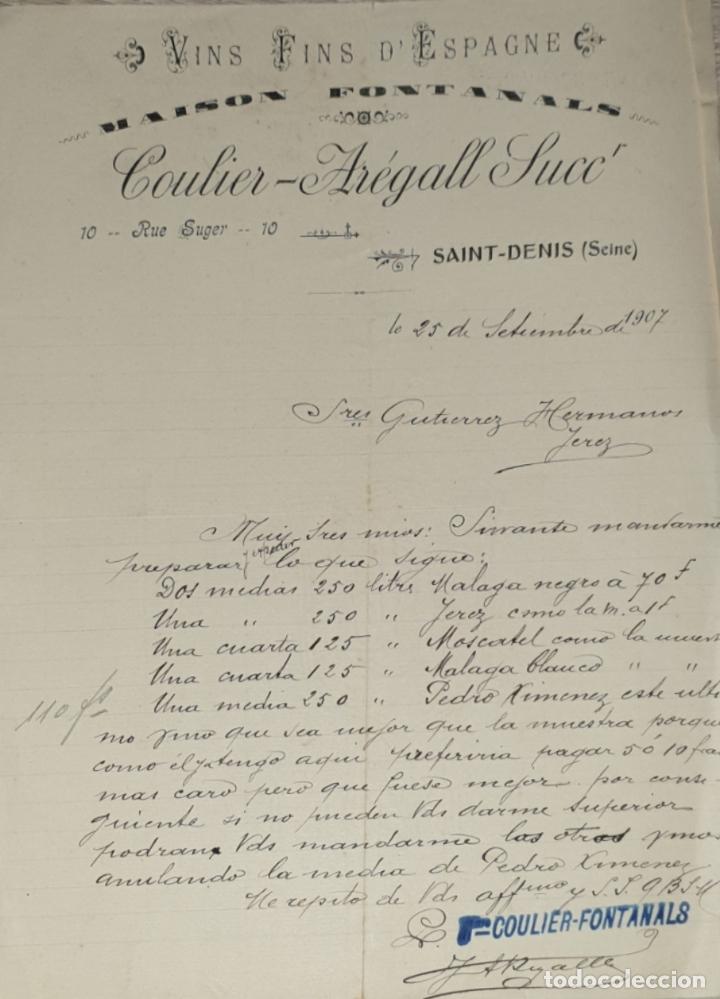 VINS FINS D'ESPAGNE
MAISON FONTANALS
Coulier-Arégall Succr
10 -- Rue Suger -- 10
SAINT-DENIS (Seine)
le 25 de Setiembre de 1907
Sres Gutierrez Hermanos
Jerez
Muy Sres mios: Sirvanse mandarme
preparar y expedir lo que sigue:
Dos medias 250 litrs Malaga negro à 70 f
Una " 250 " Jerez como la m. a 1f
Una cuarta 125 " Moscatel como la muest
Una cuarta 125 " Malaga blanco " "
110 fs Una media 250 " Pedro Ximenez este ulti
mo vino que sea mejor que la muestra porque
como el tengo aqui preferiria pagar 5 ó 10 fra
mas caro pero que fuese mejor por conse-
guiente si no pueden Vds darme superior
podran Vds mandarme los otros vinos
anulando la media de Pedro Ximenez
Me repito de Vds affmo y S.S. Q B S M
P. COULIER-FONTANALS
todocoleccion